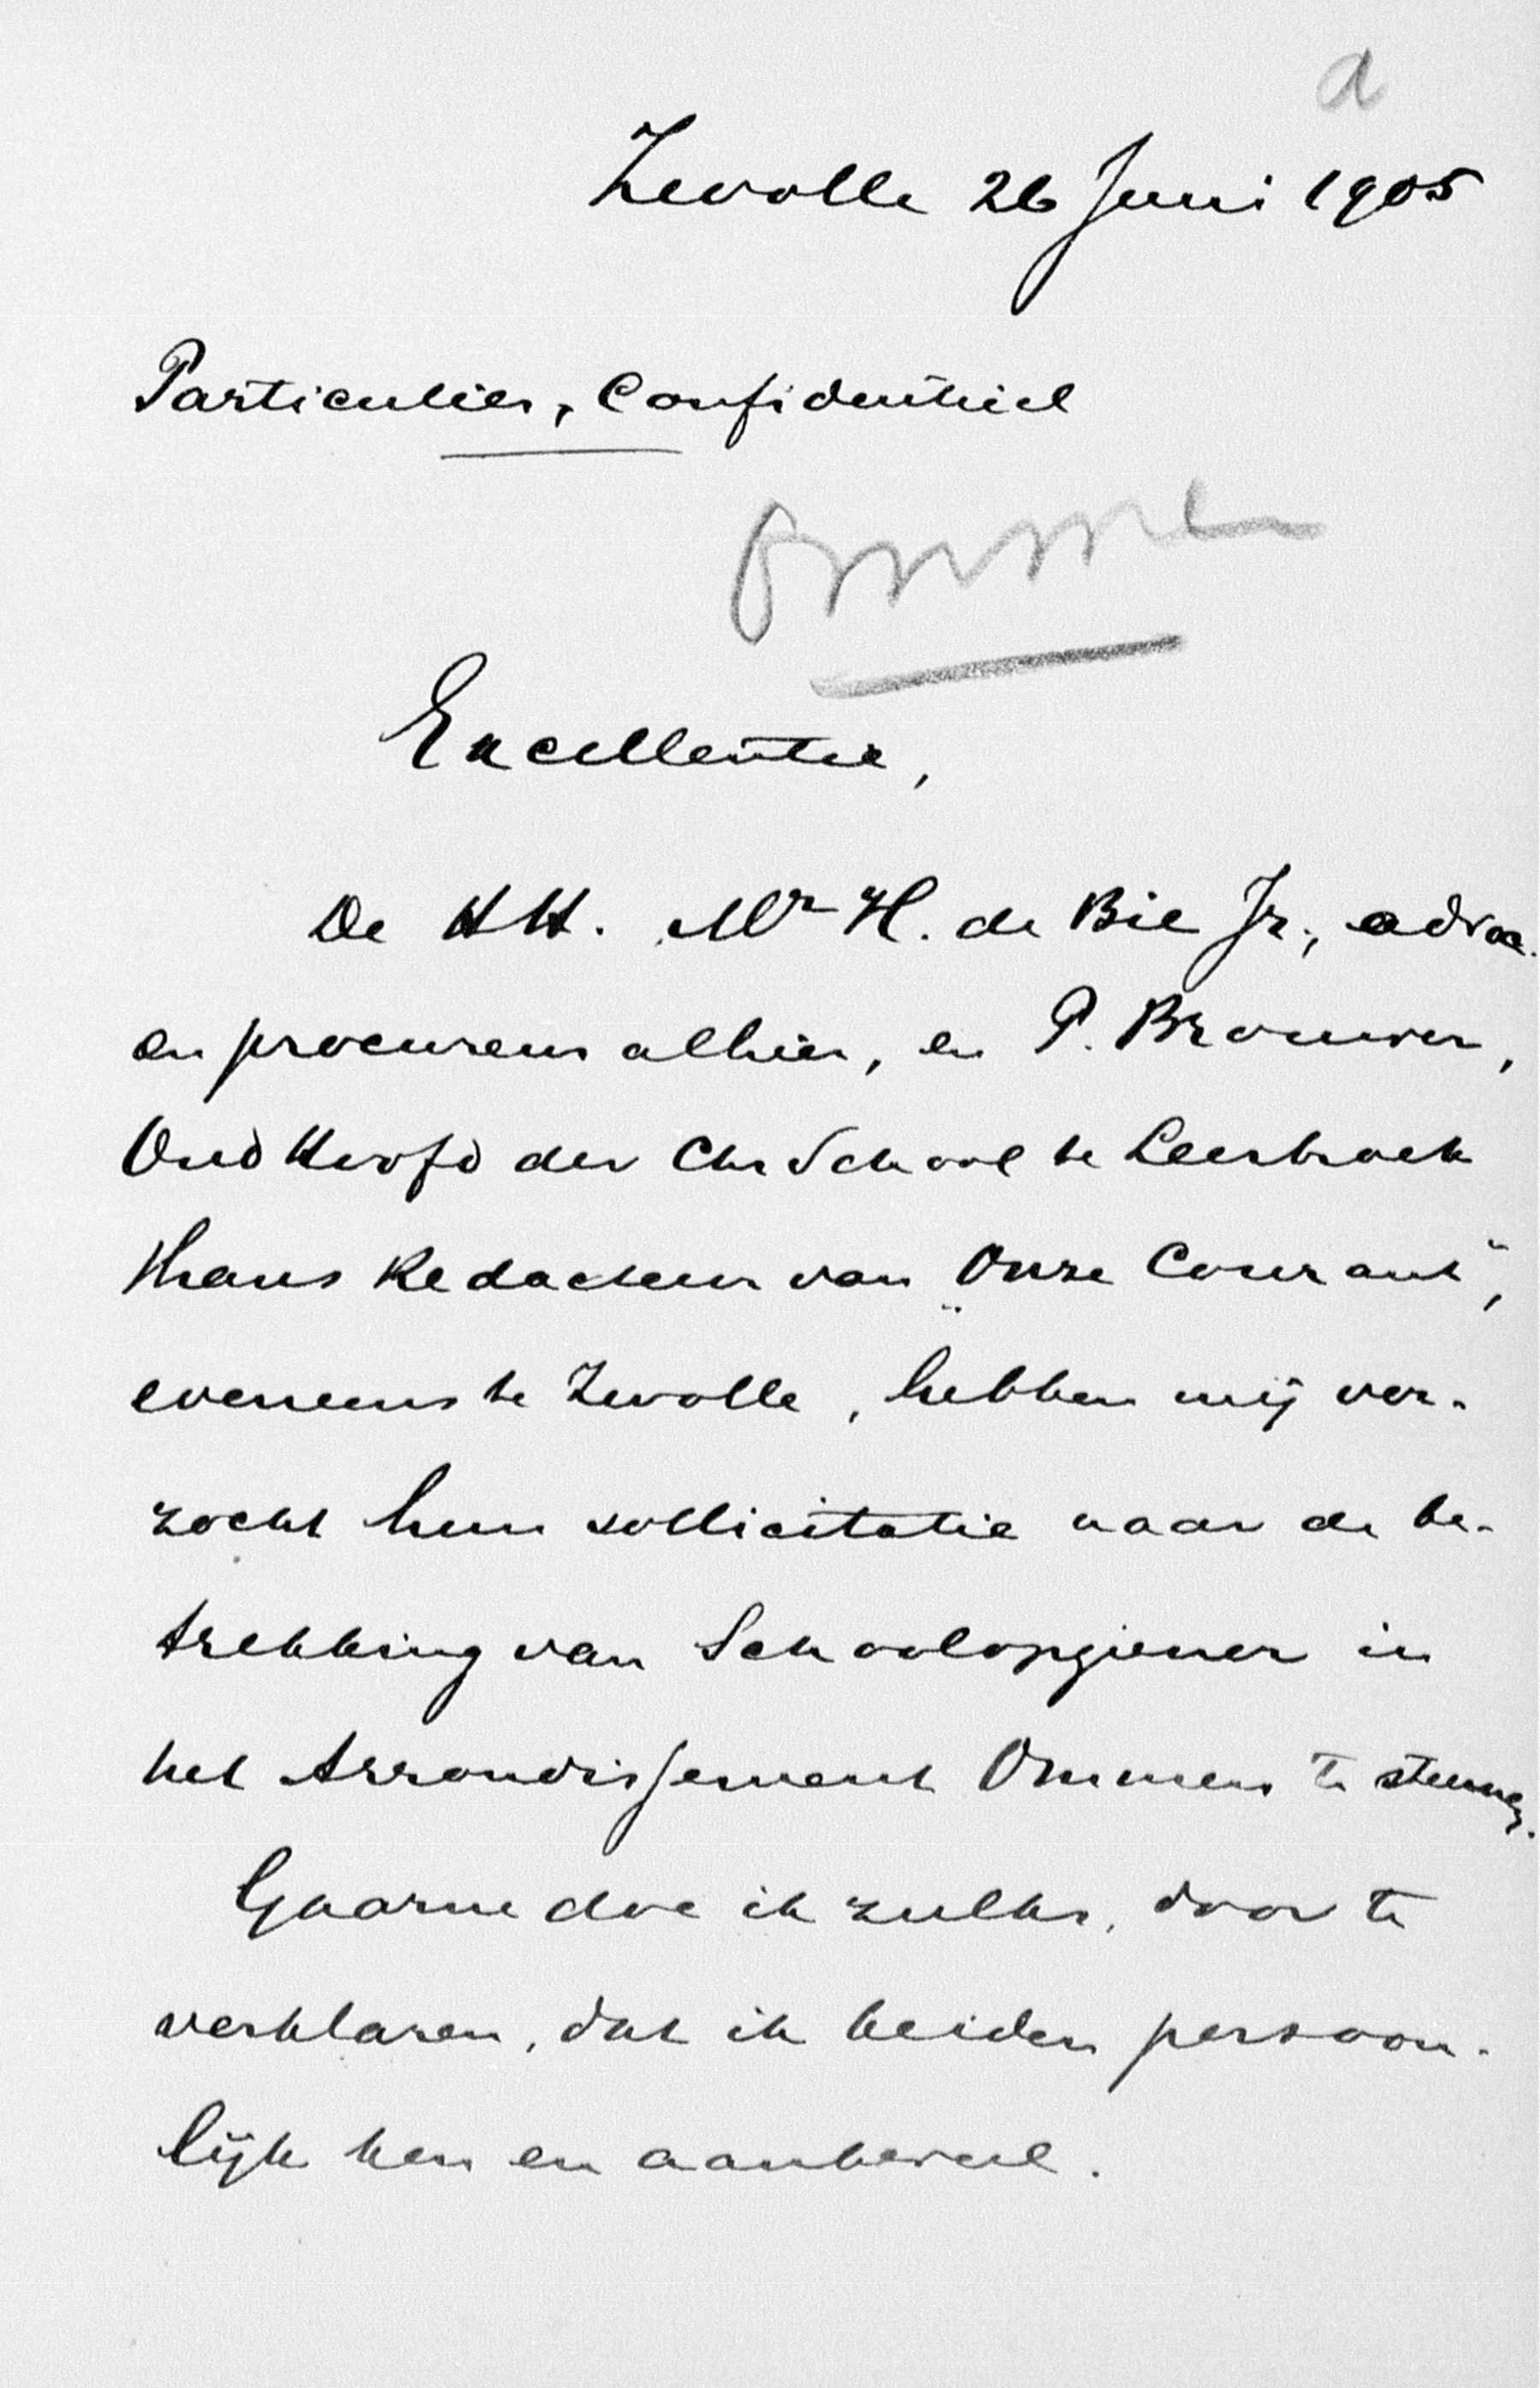 a
Zwolle 26 Juni 1905
Particulier, Confidentiëel
Ommen
Excellentie,
De HH. Mr H. de Bie Jr., advoc.
en procureur alhier, en P. Brouwer,
Oud Hoofd der Chr School te Leerbroek
thans Redacteur van „Onze Courant”,
eveneens te Zwolle, hebben mij ver-
zocht hun sollicitatie naar de be-
trekking van Schoolopziener in
het Arrondissement Ommen te steunen.
Gaarne doe ik zulks, door te
verklaren, dat ik beiden persoon-
lijk ken en aanbeveel.